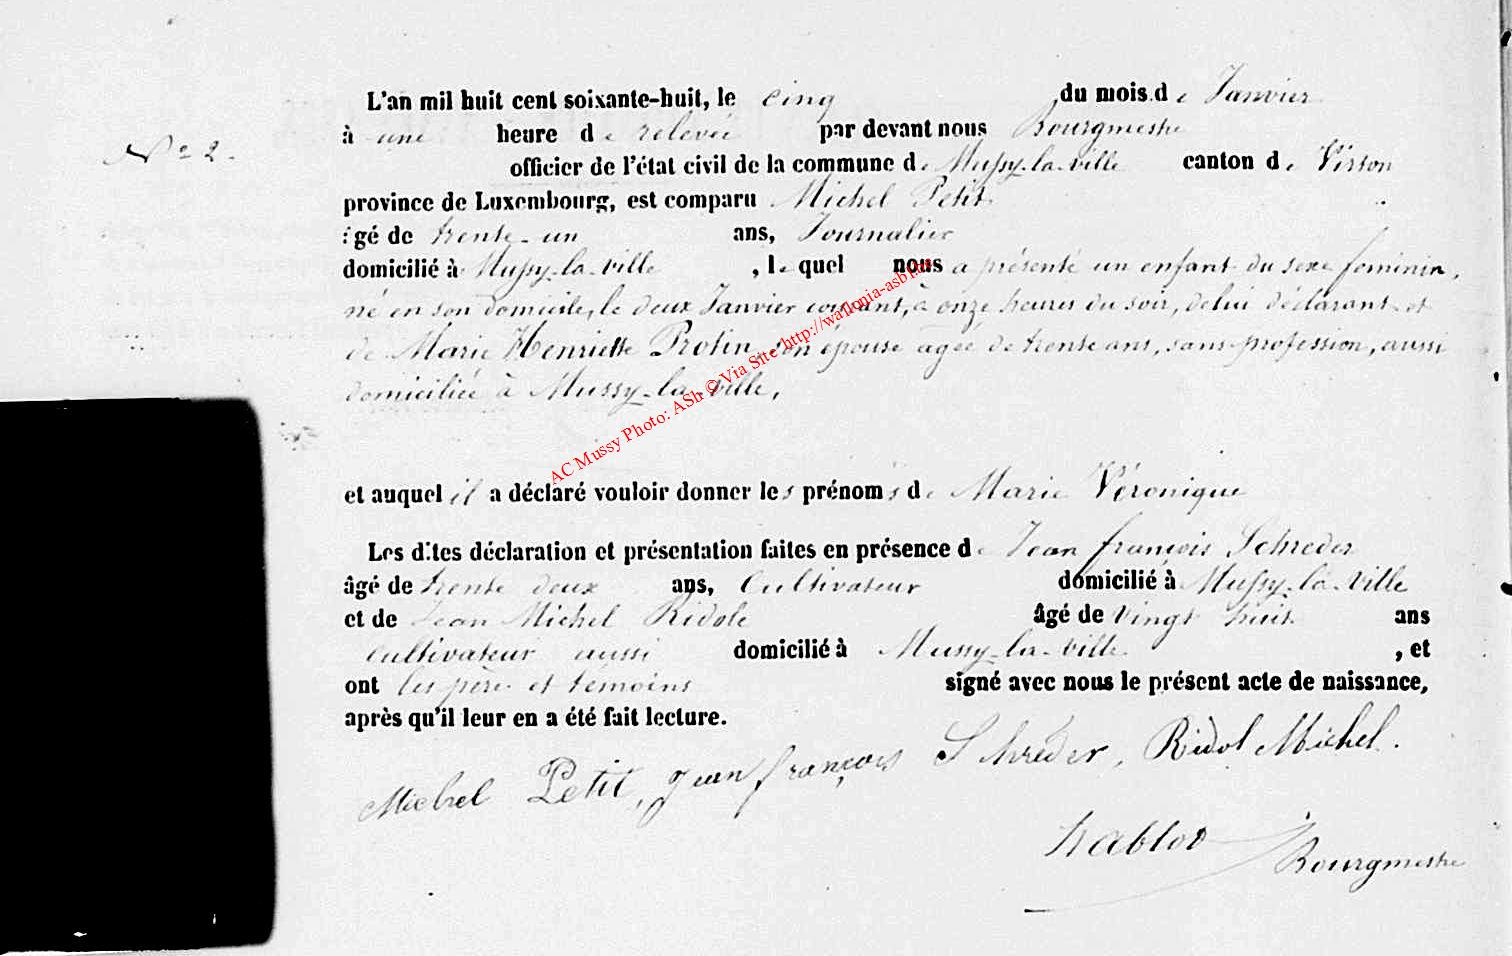 L'an mil huit cent soixante-huit, le cinq du mois de Janvier
à une heure de relevée par devant nous Bourgmestre
N° 2.
officier de l'état civil de la commune de Mussy-la-ville canton de Virton
province de Luxembourg, est comparu Michel Petit
âgé de trente-un ans, Journalier
domicilié à Mussy-la-ville, lequel nous a présenté un enfant du sexe féminin,
né en son domicile, le deux Janvier courant, à onze heures du soir, de lui déclarant et
de Marie Henriette Protin, son épouse agée de trente ans, sans profession, aussi
domiciliée à Mussy-la-ville,
AC Mussy Photo: ASb © Via Site http://wallonia-asbl.be
et auquel il a déclaré vouloir donner les prénoms de Marie Véronique
Les dites déclaration et présentation faites en présence de Jean françois Schreder
âgé de trente deux ans, Cultivateur domicilié à Mussy-la-ville
et de Jean Michel Ridole âgé de vingt huit ans
cultivateur aussi domicilié à Mussy-la-ville, et
ont les père et témoins signé avec nous le présent acte de naissance,
après qu'il leur en a été fait lecture.
Michel Petit, Jean françois Schreder, Ridol Michel.
hablot
Bourgmestre